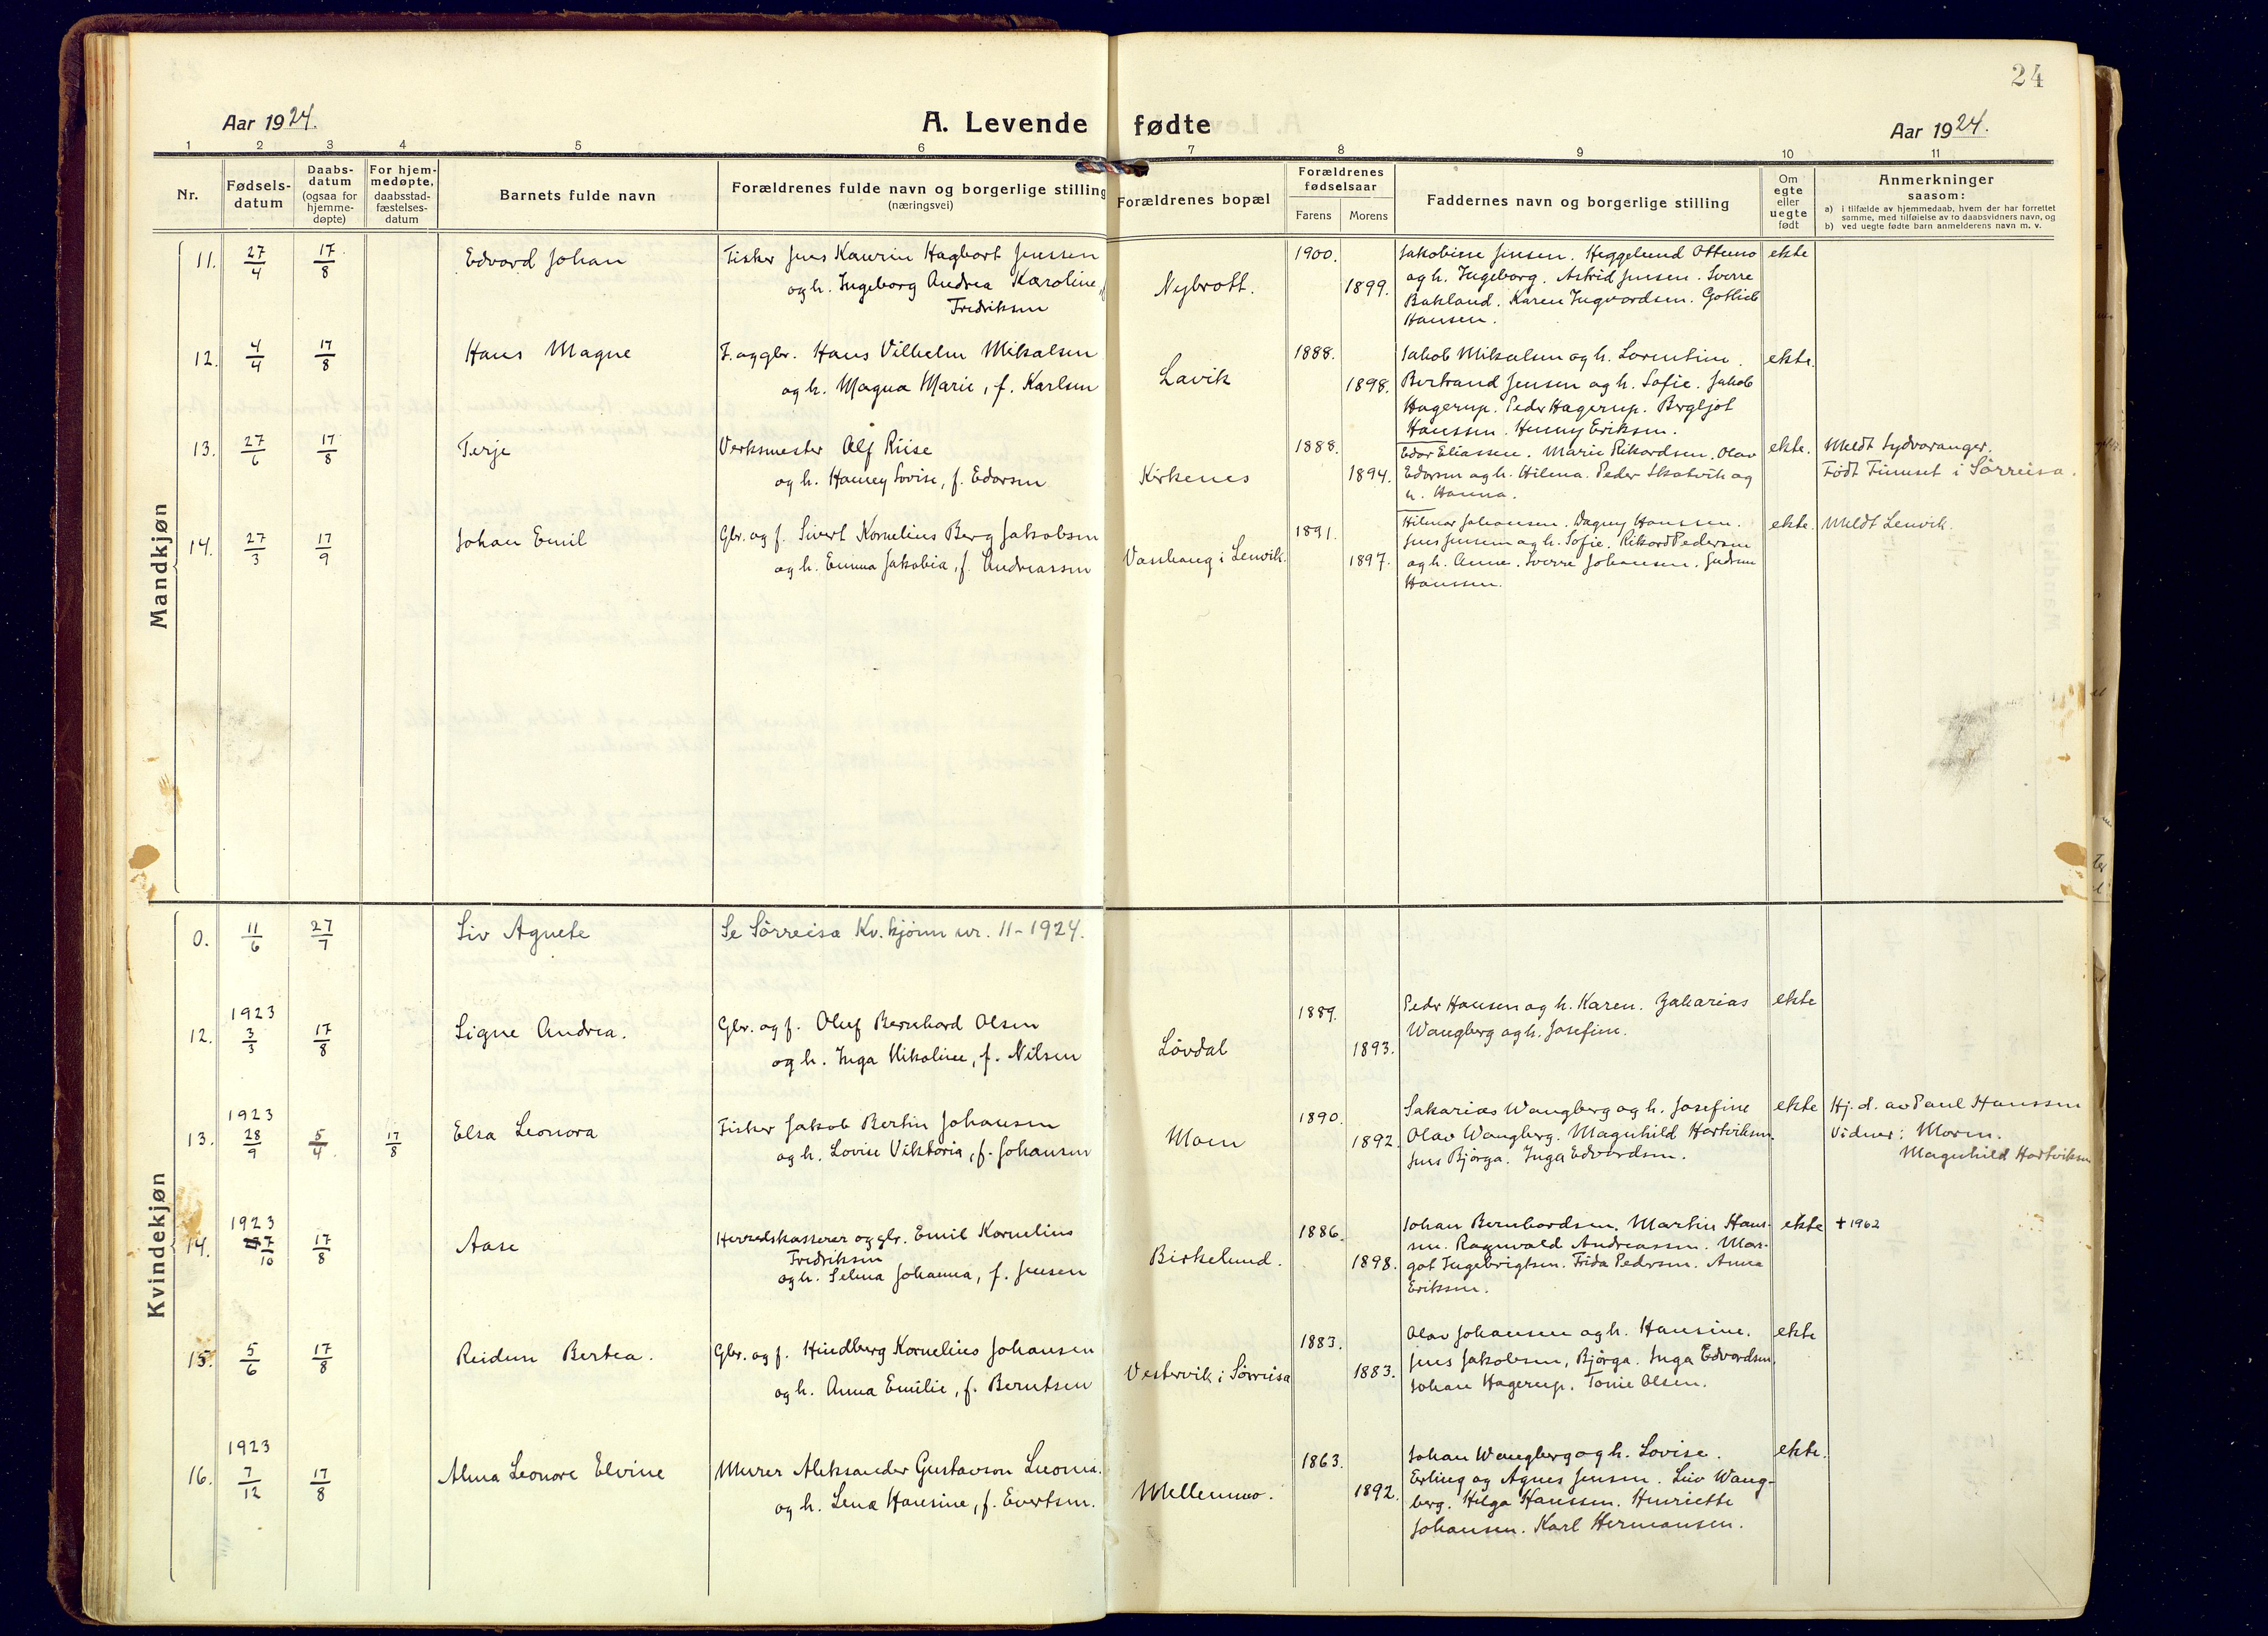 24
Aar 1924.
A. Levende fødte
Aar 1924.
1 2 3 4 5 6 7 8 9 10 11
Nr.
Fødsels-
datum
Daabs-
datum
(ogsaa for
hjemme-
døpte)
For hjem-
medøpte,
daabsstad-
fæstelses-
datum
Barnets fulde navn
Forældrenes fulde navn og borgerlige stilling
(næringsvei)
Forældrenes bopæl
Forældrenes
fødselsaar
Farens Morens
Faddernes navn og borgerlige stilling
Om
egte
eller
uegte
født
Anmerkninger
saasom:
a) i tilfælde av hjemmedaab, hvem der har forrettet
samme, med tilføielse av to daabsvidners navn, og
b) ved uegte fødte barn anmelderens navn m. v.
Mandkjøn
11. 27/4 17/8 Edvard Johan
Fisker Jens Kaurin Hagbart Jenssen
og h. Ingeborg Andrea Karoline, f.
Fredriksen
Nybrott.
1900.
1899.
Jakobine Jensen. Heggelund Ottemo
og h. Ingeborg. Astrid Jensen. Sverre
Bakland. Karen Ingvardsen. Gotlieb
Hansen.
ekte
12. 4/4 17/8 Hans Magne
F. og gbr. Hans Vilhelm Mikalsen
og h. Magna Marie, f. Karlsen
Lavik
1888.
1898.
Jakob Mikalsen og h. Lorentine.
Bertrand Jensen og h. Sofie. Jakob
Hagerup. Peder Hagerup. Bergljot
Hanssen. Henny Eriksen.
ekte.
13. 27/6 17/8 Terje
Verksmester Alf Riise
og h. Hanney Lovise, f. Edorsen
Kirkenes
1888.
1894.
Edor Eliassen. Marie Rikardsen. Olav
Edorsen og h. Hilma. Peder Skatvik og
h. Hanna.
ekte.
Meldt Sydvaranger.
Født Finnset i Sørreisa.
14. 27/3 17/9 Johan Emil
Gbr. og f. Sivert Kornelius Berg Jakobsen
og h. Emma Jakobia, f. Andreassen
Vasshaug i Lenvik.
1891.
1897.
Hilmar Johansen. Dagny Hanssen.
Jens Jensen og h. Sofie. Rikard Pedersen
og h. Anne. Sverre Johansen. Gudrun
Hanssen.
ekte.
Meldt Lenvik.
Kvindekjøn
0. 11/6 27/7 Siv Agnete
Se Sørreisa Kv.kjønn nr. 11-1924.
12. 1923 3/3 17/8 Signe Andrea.
Gbr. og f. Oluf Bernhard Olsen
og h. Inga Nikoline, f. Nilsen
Løvdal
1889.
1893.
Peder Hansen og h. Karen. Zakarias
Wangberg og h. Josefine.
ekte
13. 1923 28/9 5/4 17/8 Elsa Leonora
Fisker Jakob Bertin Johansen
og h. Lovise Viktoria, f. Johansen
Moen
1890.
1892.
Sakarias Wangberg og h. Josefine
Olav Wangberg. Magnhild Hartviksen.
Jens Bjørga. Inga Edvardsen.
ekte
Hj. d. av Paul Hanssen
Vidner: Moren.
Magnhild Hartviksen
14. 1923 7/10 17/8 Aase
Herredskasserer og gbr. Emil Kornelius
Fredriksen
og h. Selma Johanna, f. Jensen
Birkelund.
1886.
1898.
Johan Bernhardsen. Martin Hans-
sen. Ragnvald Andreassen. Mar-
got Ingebrigtsen. Frida Pedersen. Anna
Eriksen.
ekte
✝ 1962
15. 5/6 17/8 Reidun Bertea.
Gbr. og f. Hindberg Kornelius Johansen
og h. Anna Emilie, f. Berntsen
Vestervik i Sørreisa
1883.
1883.
Olav Johansen og h. Hansine.
Jens Jakobsen, Bjørga. Inga Edvardsen.
Johan Hagerup. Tonie Olsen.
ekte
16. 1923 7/12 17/8 Alma Leonore Elvine
Murer Aleksander Gustavson Luoma.
og h. Lena Hansine, f. Evertsen.
Mellemmo.
1863.
1892.
Johan Wangberg og h. Lovise.
Erling og Agnes Jensen. Liv Wang-
berg. Hilga Hanssen. Henriette
Johansen. Karl Hermansen.
ekte.